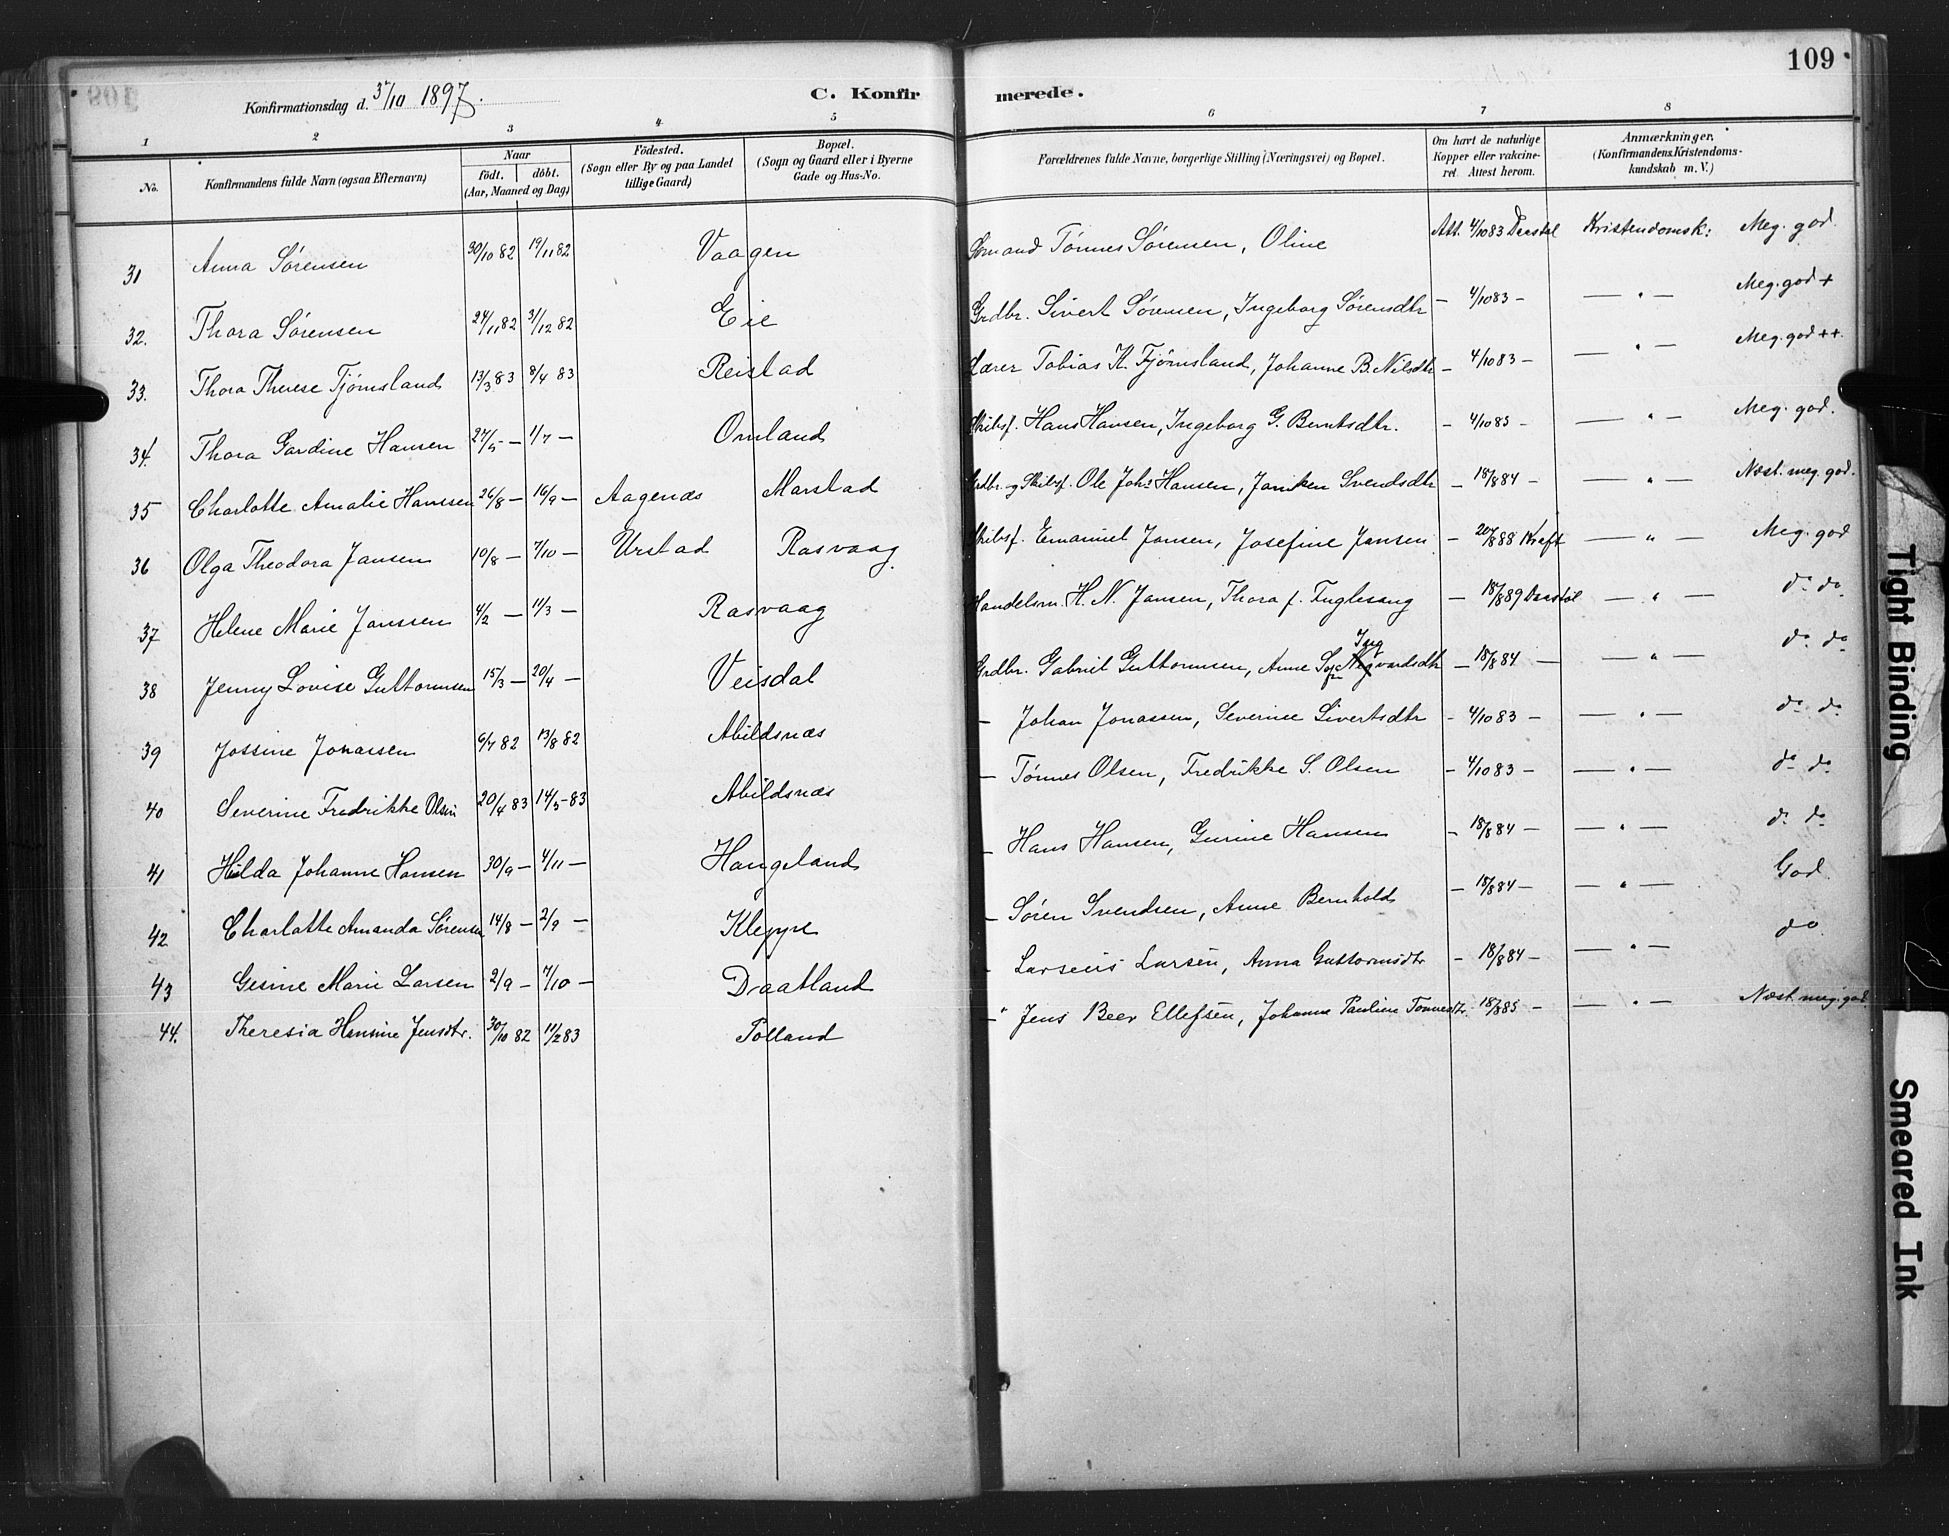 109
Konfirmationsdag d. 3/10 1897.
C. Konfirmerede.
1 2 3 4 5 6 7 8
No. Konfirmandens fulde Navn (ogsaa Efternavn) Naar födt. döbt. (Aar, Maaned og Dag) Födested. (Sogn eller By og paa Landet tillige Gaard) Bopæl. (Sogn og Gaard eller i Byerne Gade og Hus-No. Forældrenes fulde Navne, borgerlige Stilling (Næringsvei) og Bopæl. Om havt de naturlige Kopper eller vakcineret. Attest herom. Anmærkninger. (Konfirmandens Kristendomskundskab m. V.)
31 Anna Sørensen 30/10 82 19/11 82 Vaagen Sømand Tønnes Sørensen, Oline Att. 4/10 83 Daastøl Kristendomsk: Meg. god.
32. Thora Sørensen 24/11 82 31/12 82 Eie Grdbr. Sivert Sørensen, Ingeborg Sørensdtr — 4/10 83 — — " — Meg. god +
33. Thora Therese Tjømsland 13/3 83 8/4 83 Reistad Lærer Tobias K. Tjømsland, Johanne B. Nilsdtr — 4/10 83 — — " — Meg. god ++.
34. Thora Gardine Hansen 27/5 — 1/7 — Omland Skibsf. Hans Hansen, Ingeborg G. Berntsdtr. — 4/10 83 — — " — Meg. god.
35 Charlotte Amalie Hanssen 26/8 — 16/9 — Aagenæs Marstad Grdbr. og Skibsf. Ole Johs Hansen, Janiken Svendsdtr — 18/8 84 — — " — Næst. meg. god.
36 Olga Theodora Jansen 10/8 — 7/10 — Urstad Rasvaag Skibsf. Emanuel Jansen, Josefine Jansen — 20/8 88 Kraft — " — Meg. god
37 Helene Marie Janssen 4/2 — 11/3 — Rasvaag Handelsm. H. N. Jansen, Thora f. Fuglesang — 18/8 89 Daastøl — " — do do
38 Jenny Lovise Guttormsen 15/3 — 20/4 — Veisdal Grdbr. Gabriel Guttormsen, Anne Sofie Ingvardsdtr — 18/8 84 — — " — do do
39 Jossine Jonassen 6/7 82 13/8 82 Abildsnæs — Johan Jonassen, Severine Sivertsdtr — 4/10 83 — — " — do do
40 Severine Fredrikke Olsen 20/4 83 14/5 83 Abildsnæs — Tønnes Olsen, Fredrikke S. Olsen — 4/10 83 — — " — do do
41 Hilda Johanne Hansen 30/9 — 4/11 — Haugeland — Hans Hansen, Gurine Hansen — 18/8 84 — — " — do do
42 Charlotte Amanda Sørensen 14/8 — 2/9 — Kleppe — Søren Svendsen, Anne Bernholds — 18/8 84 — — " — God.
43 Gesine Marie Larsen 2/9 — 7/10 — Draatland — Larseus Larsen, Anna Guttormsdtr — 18/8 84 — — " — do.
44. Theresia Hensine Jensdtr. 30/10 82 11/2 83 Tolland — " Jens Beer Ellefsen, Johanne Pauline Tønnesdtr. 18/8 85 — — " — Næst meg. god
Tight Binding
Smeared Ink